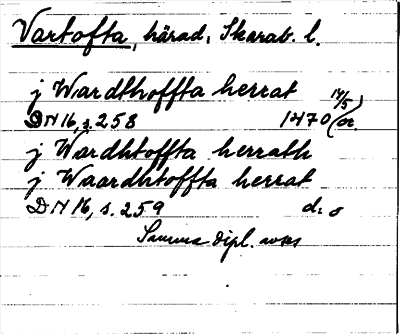 Vartofta, härad, Skarab. l.
j Wardthoffta herrat 14/5
DN 16, s. 258 1470 (or.
j Wardhtoffta herrath
j Waardhtoffta herrat
DN 16, s. 259 d:o
Samma dipl.